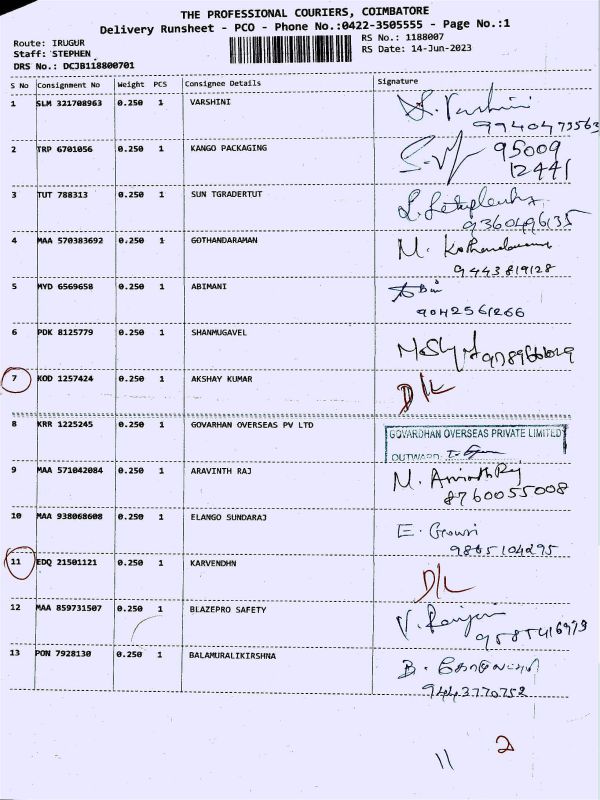 THE PROFESSIONAL COURIERS, COIMBATORE
Delivery Runsheet - PCO - Phone No.:0422-3505555 - Page No.:1
Route: IRUGUR
RS No.: 1188007
Staff: STEPHEN
RS Date: 14-Jun-2023
DRS No.: DCJB118800701
S No Consignment No Weight PCS Consignee Details Signature
1 SLM 321708963 0.250 1 VARSHINI
2 TRP 6701056 0.250 1 KANGO PACKAGING 95009
12441
3 TUT 788313 0.250 1 SUN TGRADERTUT
9360496135
4 MAA 570383692 0.250 1 GOTHANDARAMAN M.
9443819128
5 MYD 6569658 0.250 1 ABIMANI
9042561266
6 PDK 8125779 0.250 1 SHANMUGAVEL
7 KOD 1257424 0.250 1 AKSHAY KUMAR D/L
8 KRR 1225245 0.250 1 GOVARHAN OVERSEAS PV LTD GOVARDHAN OVERSEAS PRIVATE LIMITED
OUTWARD
9 MAA 571042084 0.250 1 ARAVINTH RAJ M.
8760055008
10 MAA 938068608 0.250 1 ELANGO SUNDARAJ E. Gowri
9865104295
11 EDQ 21501121 0.250 1 KARVENDHN D/L
12 MAA 859731507 0.250 1 BLAZEPRO SAFETY V.
9585416979
13 PON 7928130 0.250 1 BALAMURALIKIRSHNA B.
9443770752
11 2